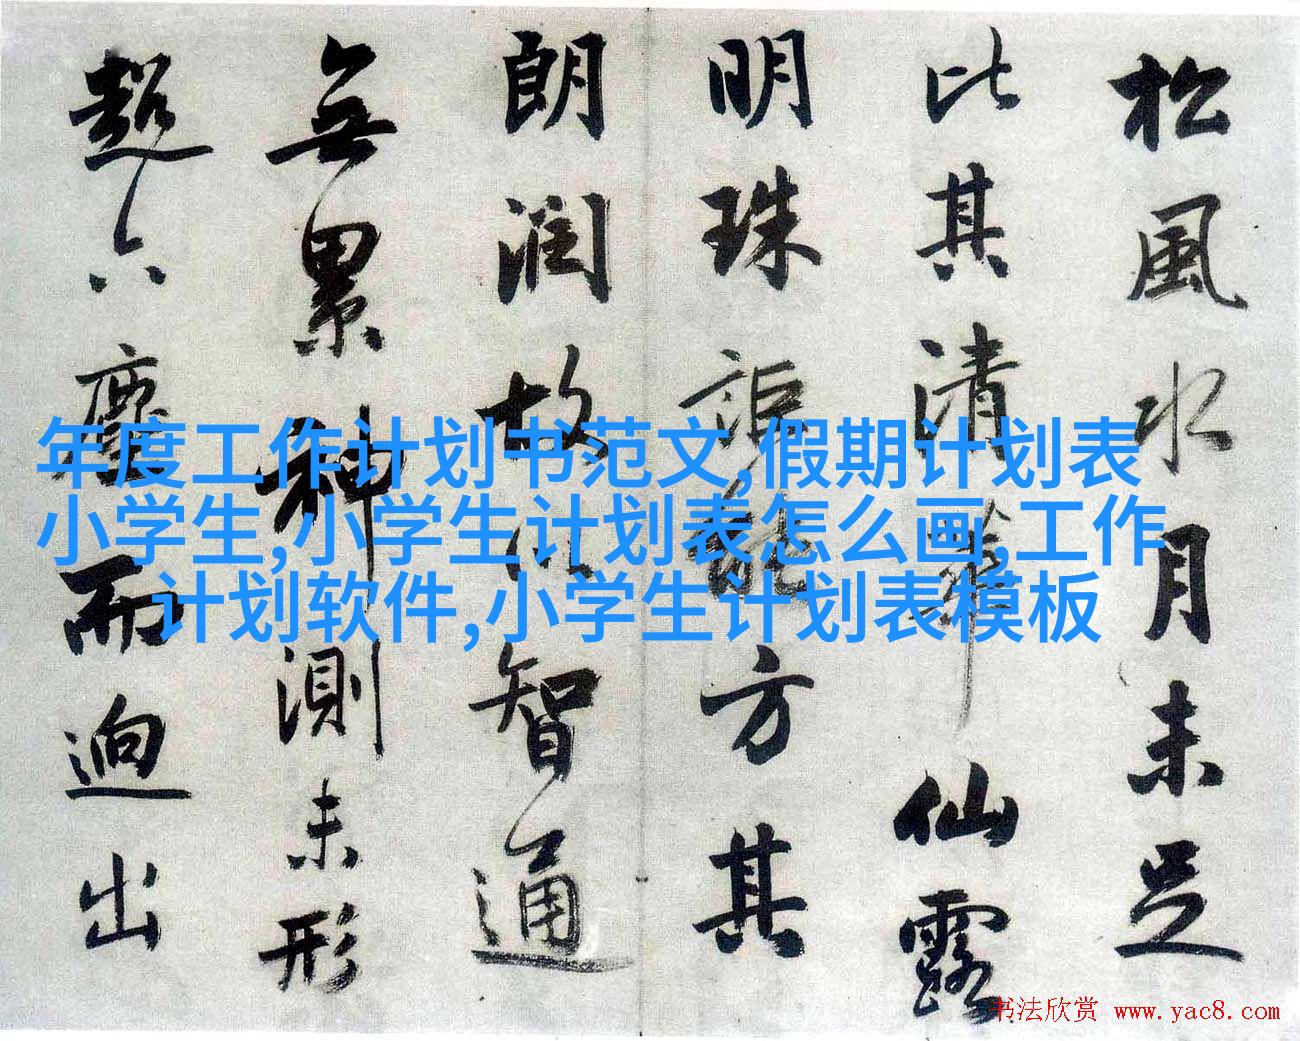 松風水月未足
比其清華仙露
明珠詎能方其
朗潤故以智通
無累神測未形
超六塵而迥出
年度工作计划书范文,假期计划表
小学生,小学生计划表怎么画,工作
计划软件,小学生计划表模板
书法欣赏 www.yac8.com